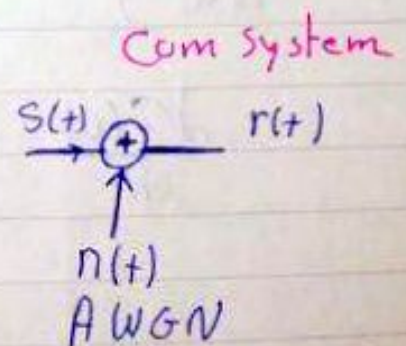 Com System
S(t) + r(t)
n(t)
AWGN